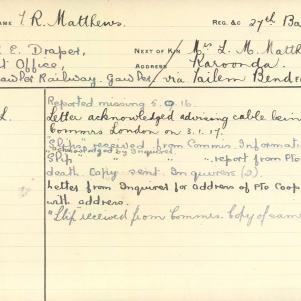 NAME T.R. Matthews. REG. &c 27th Ba
E. Draper, NEXT OF KIN Mrs L. M. Matth
t Office, ADDRESS Karoonda.
awler Railway. Gawler via Tailem Bend
Reported missing 5.9.16.
L. Letter acknowledged advising cable bein
Commrs London on 3.1.17.
"Slip" received from Commrs. Informatio
acknowledged by Inquirer.
Slip " " " . report from Pte
death. Copy sent Inquirers (2).
Letter from Inquirer for address of Pte Coop
with address.
"Slip received from Commrs. Copy of same